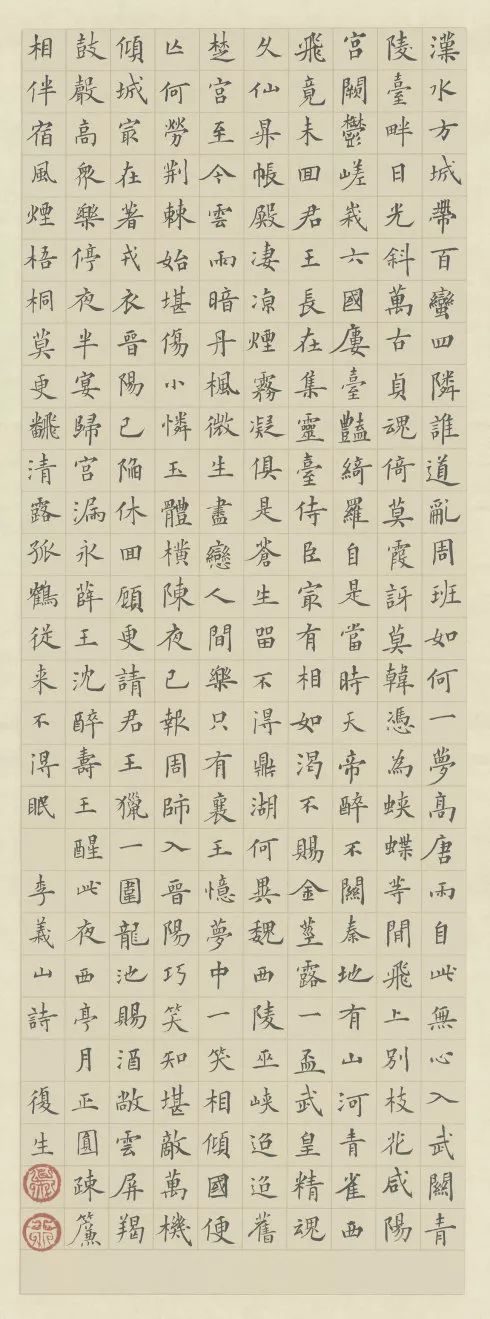 漢水方城帶百蠻四隣誰道亂周班如何一夢高唐雨自此無心入武關青
陵臺畔日光斜萬古貞魂倚莫霞訝莫韓憑為蛺蝶等閒飛上別枝花咸陽
宮闕鬱嵯峩六國廔臺豔綺羅自是當時天帝醉不關秦地有山河青雀西
飛竟未回君王長在集靈臺侍臣冣有相如渴不賜金莖露一盃武皇精魂
久仙昇帳殿淒涼煙霧凝俱是蒼生留不得鼎湖何異魏西陵巫峽迢迢舊
楚宮至今雲雨暗丹楓微生盡戀人間樂只有襄王憶夢中一笑相傾國便
亾何勞荆棘始堪傷小憐玉體橫陳夜已報周師入晉陽巧笑知堪敵萬機
傾城冣在著戎衣晉陽已陷休回顧更請君王獵一圍龍池賜酒敞雲屏羯
鼓聲高眾樂停夜半宴歸宮漏永薛王沈醉壽王醒此夜西亭月正圓疎簾
相伴宿風煙梧桐莫更飜清露孤鶴從來不得眠 李義山詩 復生